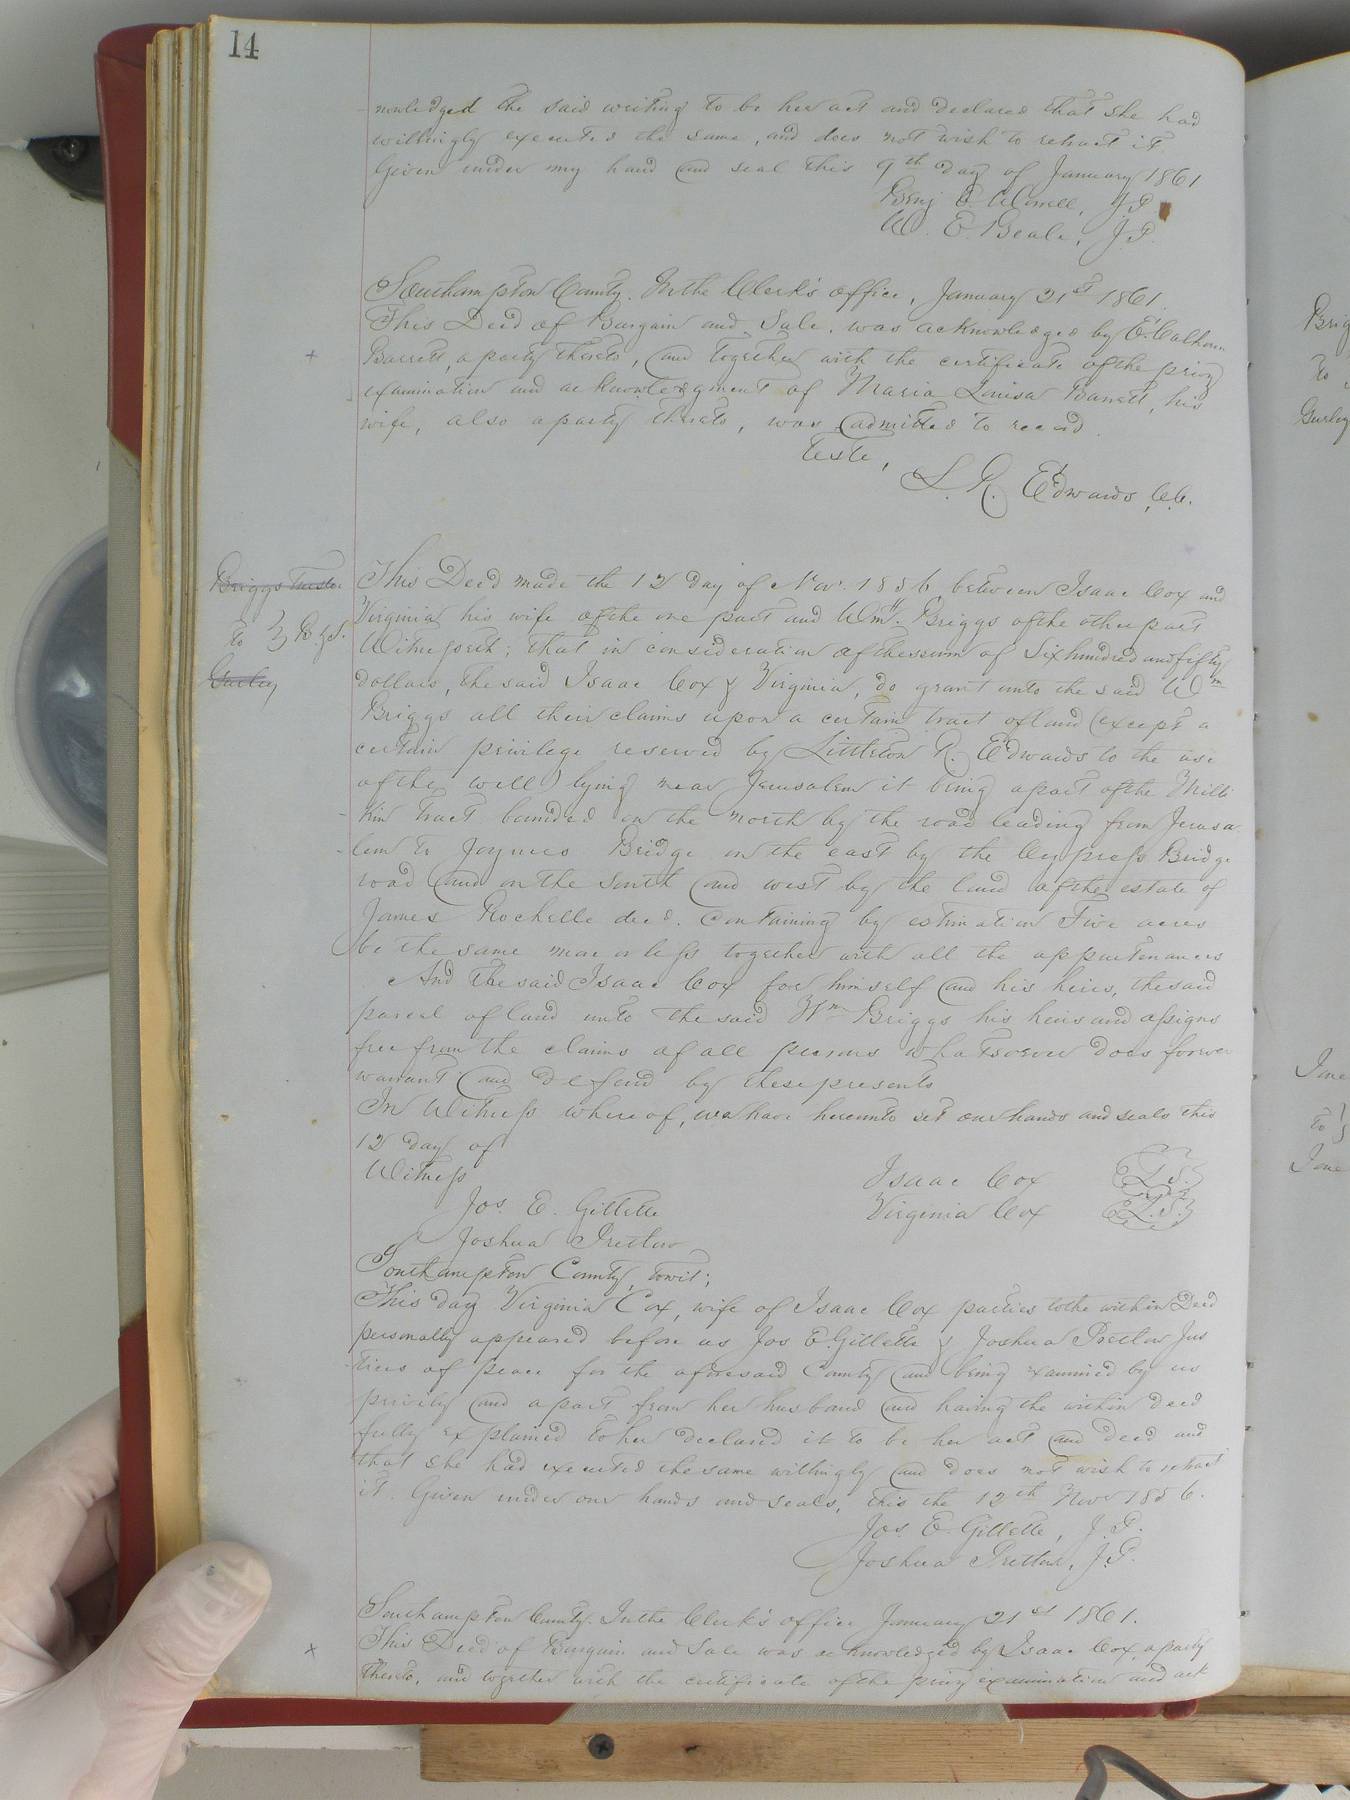 14
nowledged the said writing to be her act and declared that she had
willingly executed the same, and does not wish to retract it
Given under my hand and seal this 9th day of January 1861
Benj E. J.P.
W. E. Beale, J.P.
Southampton County. In the Clerk's office, January 21st 1861.
This Deed of Bargain and Sale, was acknowledged by E. Calhoun
Barrett, a party thereto, and together with the certificate of the privy
examination and acknowledgment of Maria Louisa Barrett, his
wife, also a party thereto, was admitted to record.
Teste,
L. R. Edwards, C.C.
Briggs Trustee
to } B. & S.
Gurley
This Deed made the 12 day of Nov. 1856, between Isaac Cox and
Virginia his wife of the one part and Wm. Briggs of the other part
Witnesseth; that in consideration of the sum of Six hundred and fifty
dollars, the said Isaac Cox & Virginia, do grant unto the said Wm
Briggs all their claims upon a certain tract of land (except a
certain privilege reserved by Littleton R. Edwards to the use
of the well) lying near Jerusalem it being a part of the Milli
kin tract bounded on the north by the road leading from Jerusa
lem to Joyners Bridge on the east by the Cypress Bridge
road and on the South and west by the land of the estate of
James Rochelle decd. Containing by estimation Five acres
be the same more or less together with all the appurtenances
And the said Isaac Cox for himself and his heirs, the said
parcel of land unto the said Wm Briggs his heirs and assigns
free from the claims of all persons whatsoever does forever
warrant and defend by these presents
In Witness whereof, we have hereunto set our hands and seals this
12 day of
Witness
Isaac Cox {L.S.}
Jos. E. Gillette
Virginia Cox {L.S.}
Joshua Pretlow
Southampton County, towit;
This day Virginia Cox, wife of Isaac Cox parties to the within Deed
personally appeared before us Jos E. Gillette & Joshua Pretlow Jus
tices of peace for the aforesaid County and being examined by us
privily and apart from her husband and having the within deed
fully explained to her declared it to be her act and deed and
that she had executed the same willingly and does not wish to retract
it. Given under our hands and seals, this the 12th Nov 1856.
Jos. E. Gillette, J.P.
Joshua Pretlow, J.P.
Southampton County. In the Clerk's office January 21st 1861.
This Deed of Bargain and Sale was acknowledged by Isaac Cox, a party
thereto, and together with the certificate of the privy examination and ack
Brig
to
Gurley
Jane
to }
Jane